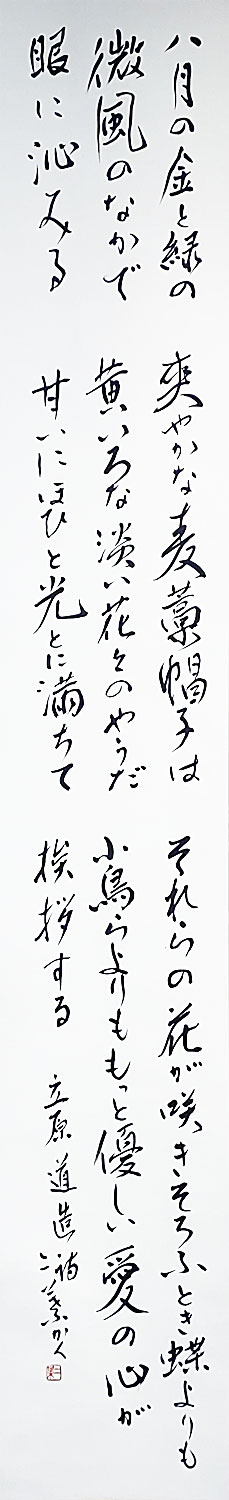 八月の金と緑の
微風のなかで
眼に沁みる
爽やかな麦藁帽子は
黄いろな淡い花々のやうだ
甘いにほひと光とに満ちて
それらの花が咲きそろふとき蝶よりも
小鳥らよりももっと優しい愛の心が
挨拶する
立原道造詩 かく